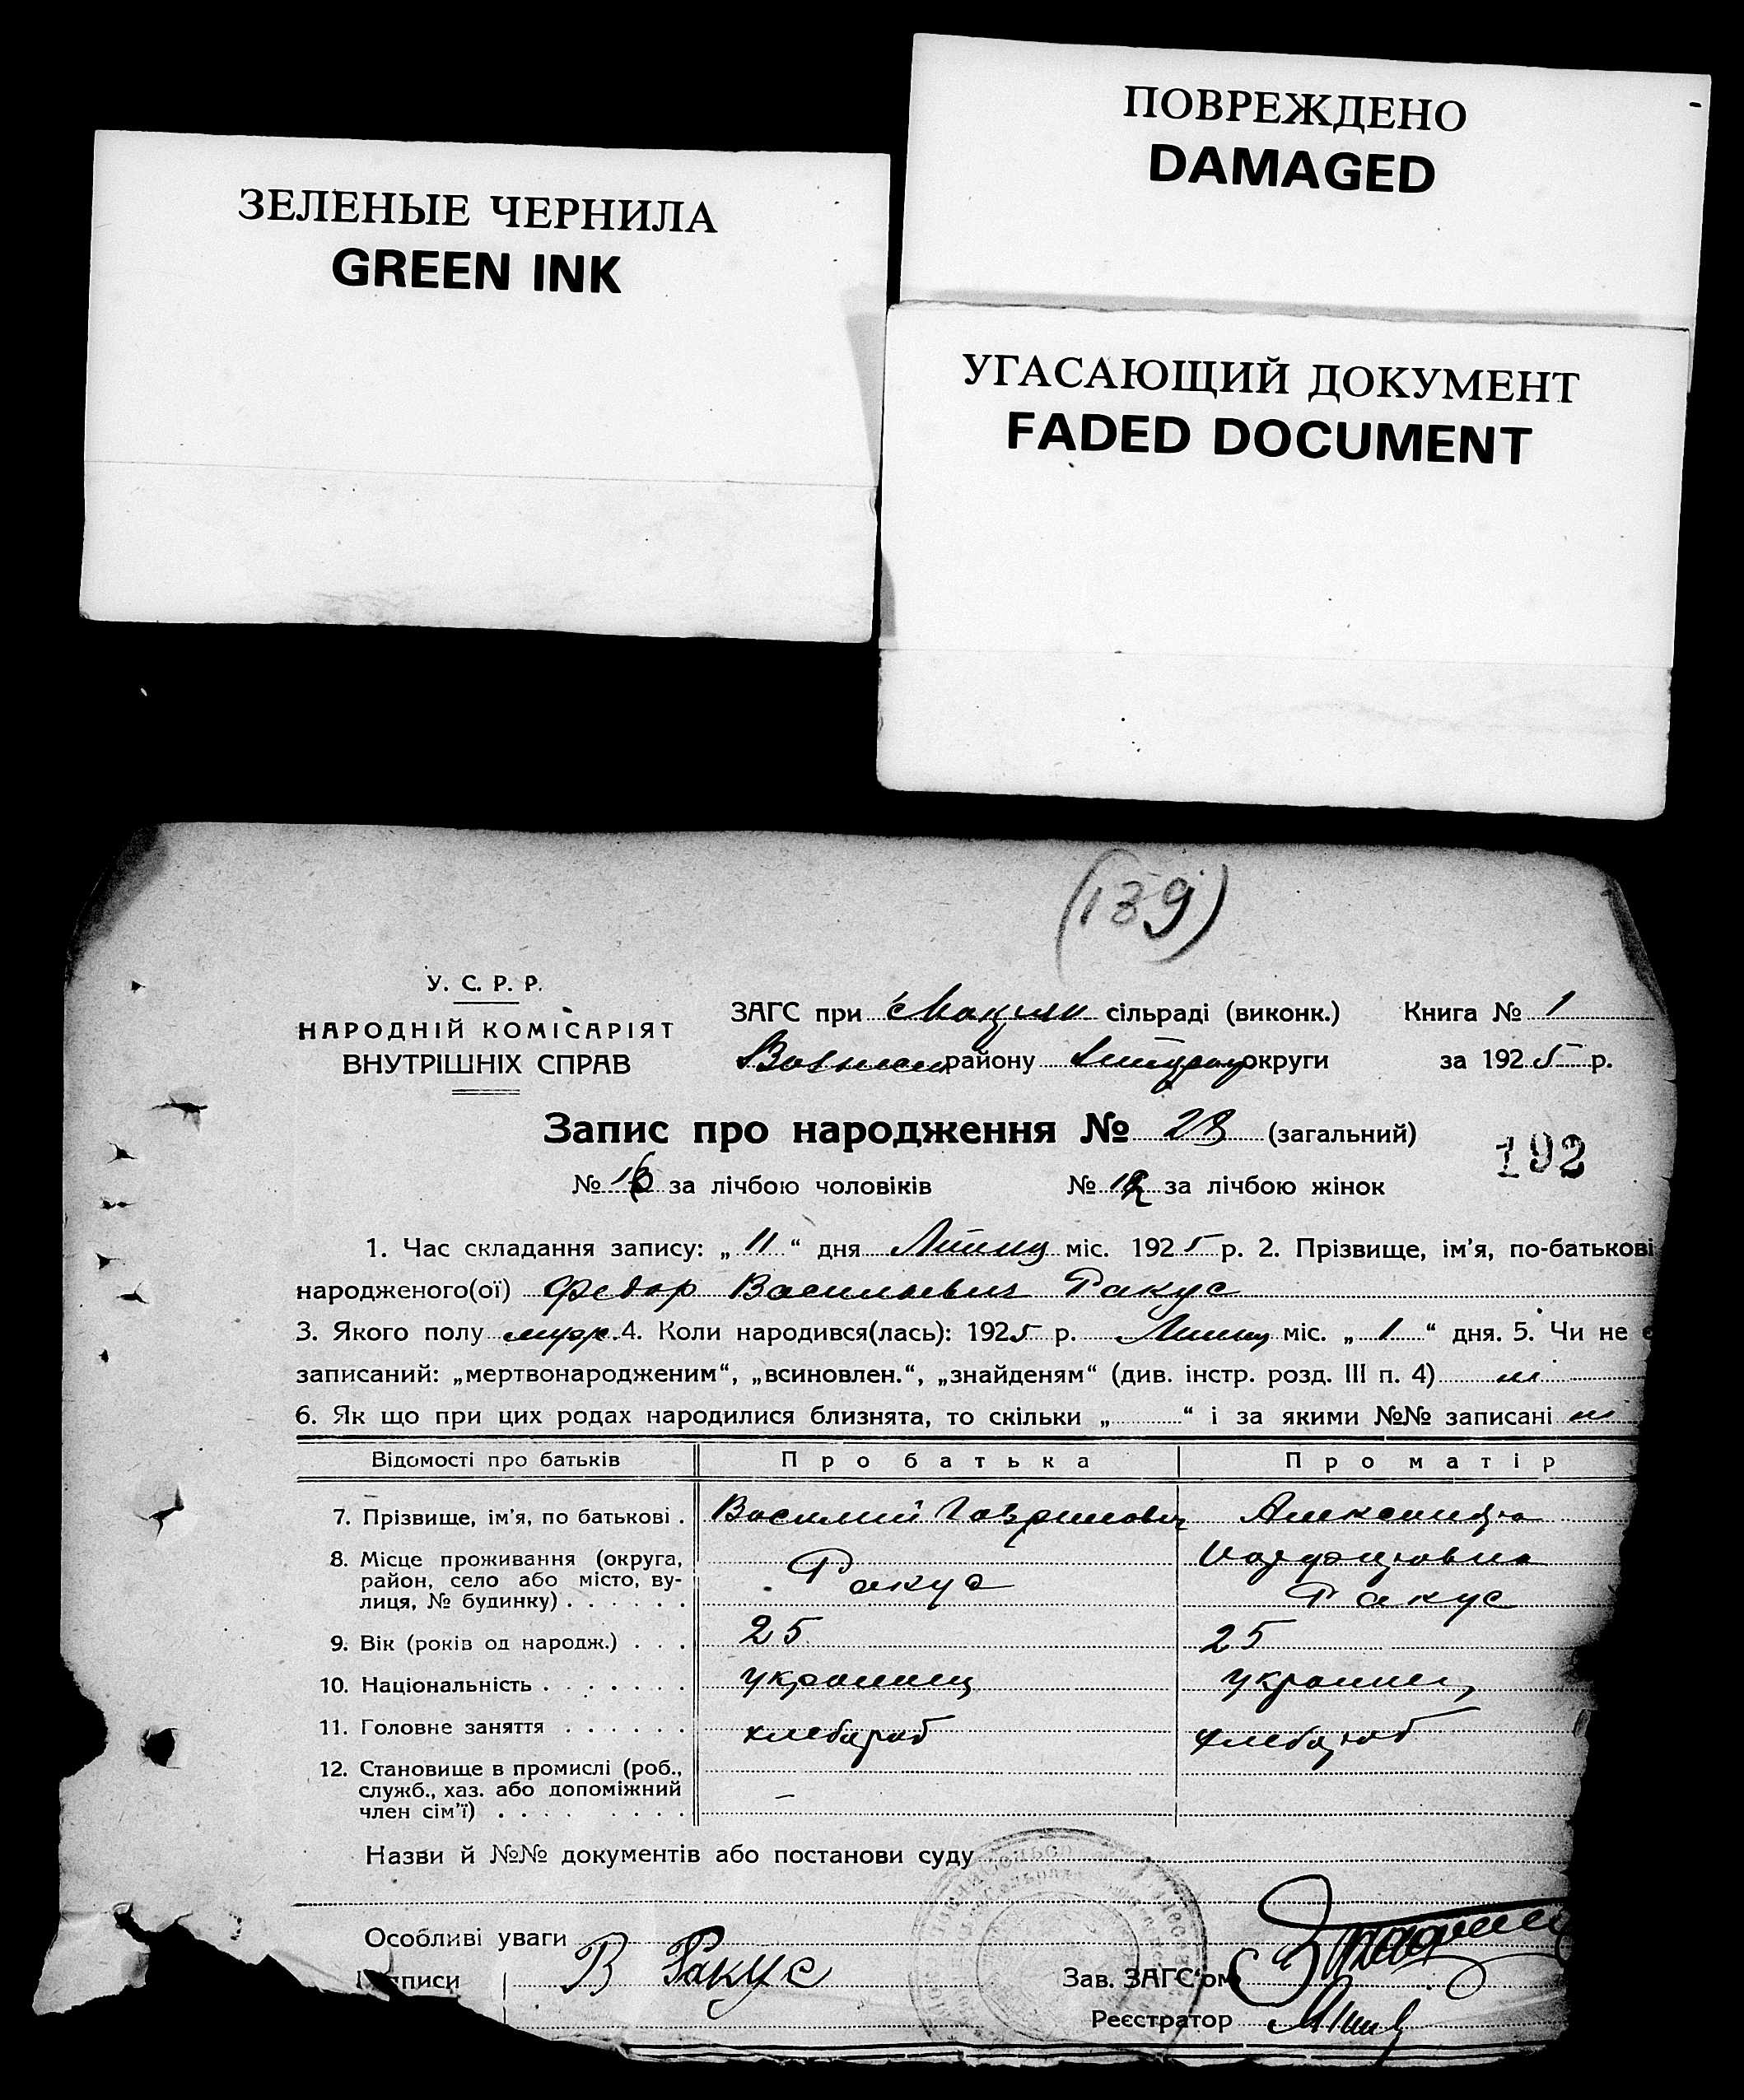 ПОВРЕЖДЕНО
DAMAGED
ЗЕЛЕНЫЕ ЧЕРНИЛА
GREEN INK
УГАСАЮЩИЙ ДОКУМЕНТ
FADED DOCUMENT
(139)
У. С. Р. Р.
НАРОДНІЙ КОМІСАРІЯТ
ВНУТРІШНІХ СПРАВ
ЗАГС при сільраді (виконк.) Книга № 1
району округи за 1925 р.
Запис про народження № 28 (загальний)
192
№ за лічбою чоловіків № за лічбою жінок
1. Час складання запису: „ 11 “ дня міс. 1925 р. 2. Прізвище, ім'я, по-батькові
народженого(ої) Федор Васильевич Ракус
3. Якого полу муж. 4. Коли народився(лась): 1925 р. міс. „ 1 “ дня. 5. Чи не є
записаний: „мертвонародженим“, „всиновлен.“, „знайденям“ (див. інстр. розд. III п. 4) ні
6. Як що при цих родах народилися близнята, то скільки „ “ і за якими №№ записані ні
Відомості про батьків Про батька Про матір
7. Прізвище, ім'я, по батькові . Василий Гаврилович
Ракус
Александра
Ракус
8. Місце проживання (округа,
район, село або місто, ву-
лиця, № будинку) . . . . . .
9. Вік (років од народж.) . . . 25 25
10. Національність . . . . . . . украинец украинец
11. Головне заняття . . . . . . хлебороб хлебороб
12. Становище в промислі (роб.,
служб., хаз. або допоміжний
член сім'ї) . . . . . . . . —
Назви й №№ документів або постанови суду
Особливі уваги
писи В Ракус Зав. ЗАГС'ом
Реєстратор